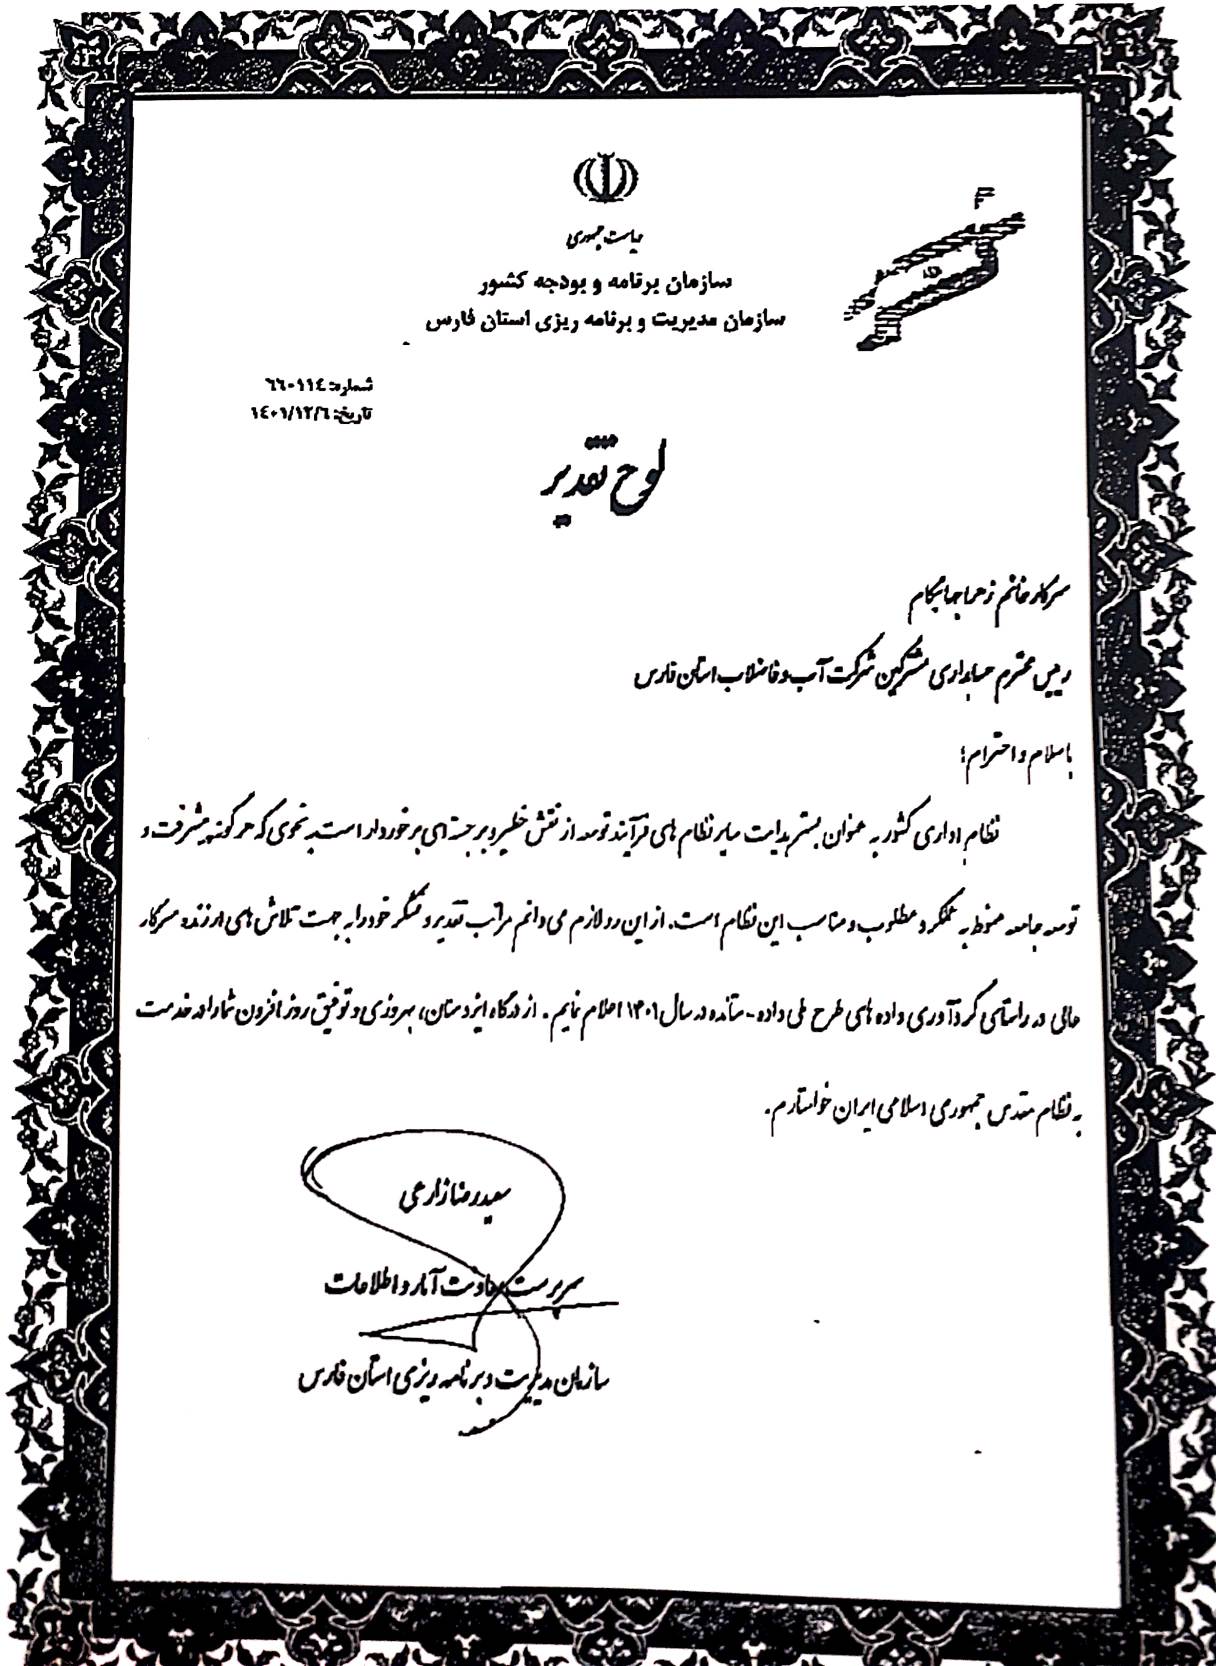 ریاست جمهوری
سازمان برنامه و بودجه کشور
سازمان مدیریت و برنامه ریزی استان فارس
شماره: ٦٦٠١١٤
تاریخ: ١٤٠١/١٢/٦
لوح تقدیر
سرکار خانم زهرا جهانیکام
رییس محترم حسابداری مشترکین شرکت آب و فاضلاب استان فارس
با سلام و احترام؛
نظام اداری کشور به عنوان بستر هدایت سایر نظام های فرآیند توسعه از نقش خطیر و برجسته ای برخوردار است به نحوی که هر گونه پیشرفت و
توسعه جامعه منوط به عملکرد مطلوب و مناسب این نظام است. از این رو لازم می دانم مراتب تقدیر و تشکر خود را به جهت تلاش های ارزنده سرکار
عالی در راستای گردآوری داده های طرح ملی داده - ستانده در سال ۱۴۰۱ اعلام نمایم. از درگاه ایزد منان، بهروزی و توفیق روز افزون شما را در خدمت
به نظام مقدس جمهوری اسلامی ایران خواستارم.
سعیدرضا زارعی
سرپرست معاونت آمار و اطلاعات
سازمان مدیریت و برنامه ریزی استان فارس